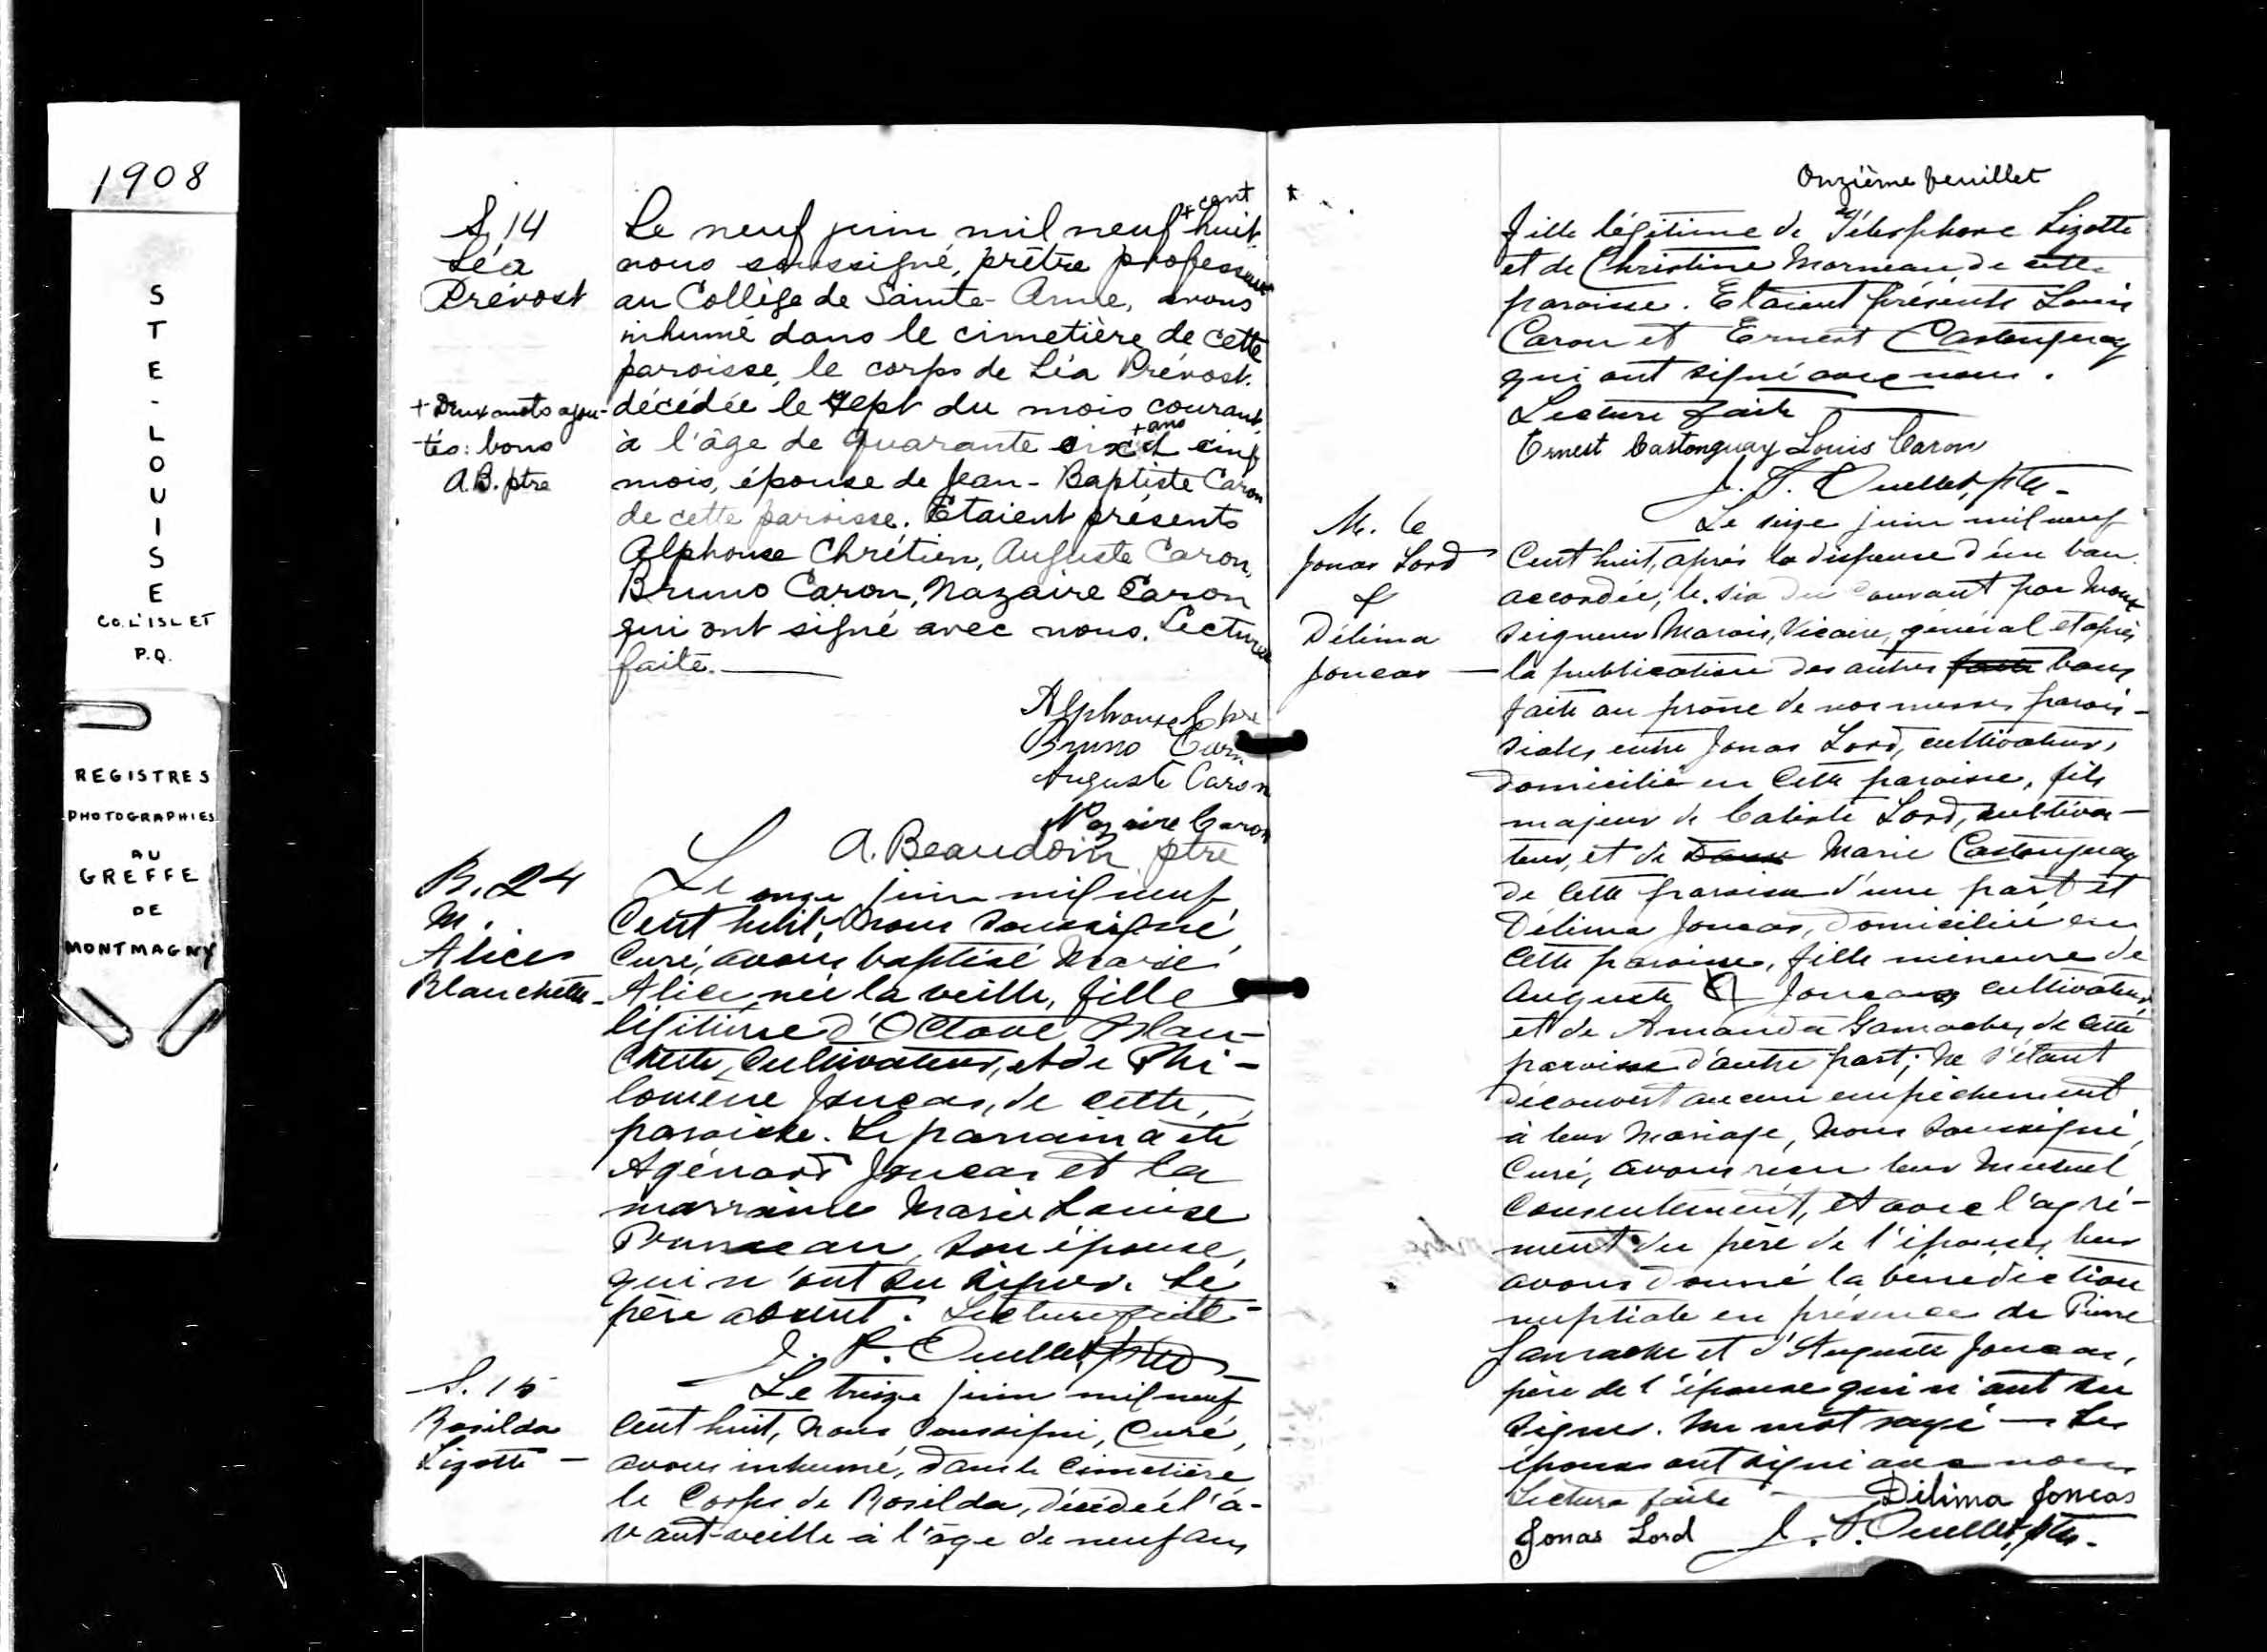 1908
STE-LOUISE
CO. L'ISLET
P.Q.
REGISTRES
PHOTOGRAPHIES
AU
GREFFE
DE
MONTMAGNY
S. 14
Léa
Prévost
+ Deux mots ajou-
tés: bons
A.B. ptre
+ cent
Le neuf juin mil neuf + huit,
nous soussigné, prêtre professeur
au Collège de Sainte-Anne, avons
inhumé dans le cimetière de cette
paroisse, le corps de Léa Prévost.
décédée le sept du mois courant,
+ ans
à l'âge de quarante six et cinq
mois, épouse de Jean-Baptiste Caron
de cette paroisse. Etaient présents
Alphonse Chrétien, Auguste Caron,
Bruno Caron, Nazaire Caron
qui ont signé avec nous. Lecture
faite.
Alphonse
Bruno Caron
Auguste Caron
Nazaire Caron
A. Beaudoin ptre
B. 24
M.
Alice
Blanchette
Le onze juin mil neuf
Cent huit, nous soussigné,
Curé, avons baptisé Marie
Alice, née la veille, fille
légitime d'Octave Blan-
chette, Cultivateur, et de Phi-
lomène Joncas, de cette
paroisse. Le parrain a été
Agénard Joncas et la
marraine Marie Louise
son épouse,
qui n'ont su signer. Le
père absent. Lecture faite -
J. P. Ouellet, ptre
S. 15
Rosilda
Lizotte -
Le treize juin mil neuf
cent huit, nous soussigné, Curé,
avons inhumé, dans le Cimetière
le Corps de Rosilda, décédée l'a-
vant-veille à l'âge de neuf ans,
Onzième feuillet
fille légitime de Télesphore Lizotte
et de Christine Morneau de cette
paroisse. Etaient présents Louis
Caron et Ernest Castonguay
qui ont signé avec nous.
Lecture faite
Ernest Castonguay Louis Caron
J. P. Ouellet, ptre -
M. 6
Jonas Lord
&
Délima
Joncas
Le seize juin mil neuf
Cent huit, après la dispense d'un ban
accordée, le six du Courant par Mon-
seigneur Marois, Vicaire, général et après
la publication des autres faite bans
faite au prône de nos messes parois-
siales, entre Jonas Lord, cultivateur,
domicilié en Cette paroisse, fils
majeur de Calixte Lord, cultiva-
teur, et de Marie Castonguay
de Cette paroisse d'une part et
Délima Joncas, domiciliée en
Cette paroisse, fille mineure de
Auguste Joncas, Cultivateur,
et de Amanda Gamache, de Cette
paroisse d'autre part; ne s'étant
découvert aucun empêchement
à leur Mariage, nous soussigné,
Curé, avons reçu leur Mutuel
Consentement, et avec l'agré-
ment du père de l'épouse, leur
avons donné la bénédiction
nuptiale en présence de Pierre
Gamache et d'Auguste Joncas,
père de l'épouse qui n'ont su
signer. Un mot rayé - Les
époux ont signé avec nous
Lecture faite - Délima Joncas
Jonas Lord J. P. Ouellet, ptre.